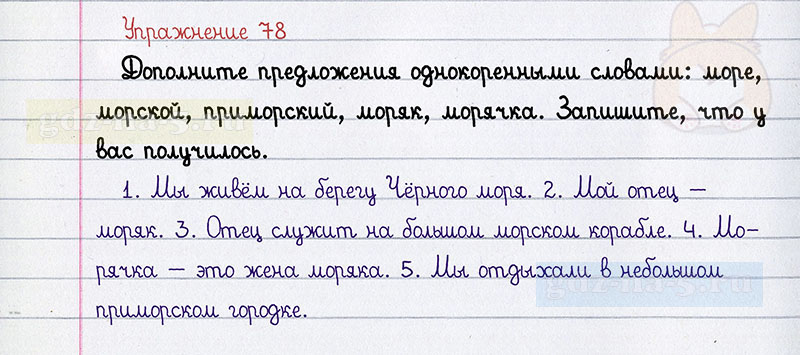 Упражнение 78
Дополните предложения однокоренными словами: море,
морской, приморский, моряк, морячка. Запишите, что у
вас получилось.
1. Мы живём на берегу Чёрного моря. 2. Мой отец –
моряк. 3. Отец служит на большом морском корабле. 4. Мо-
рячка – это жена моряка. 5. Мы отдыхали в небольшом
приморском городке.
gdz-na-5.ru
gdz-na-5.ru